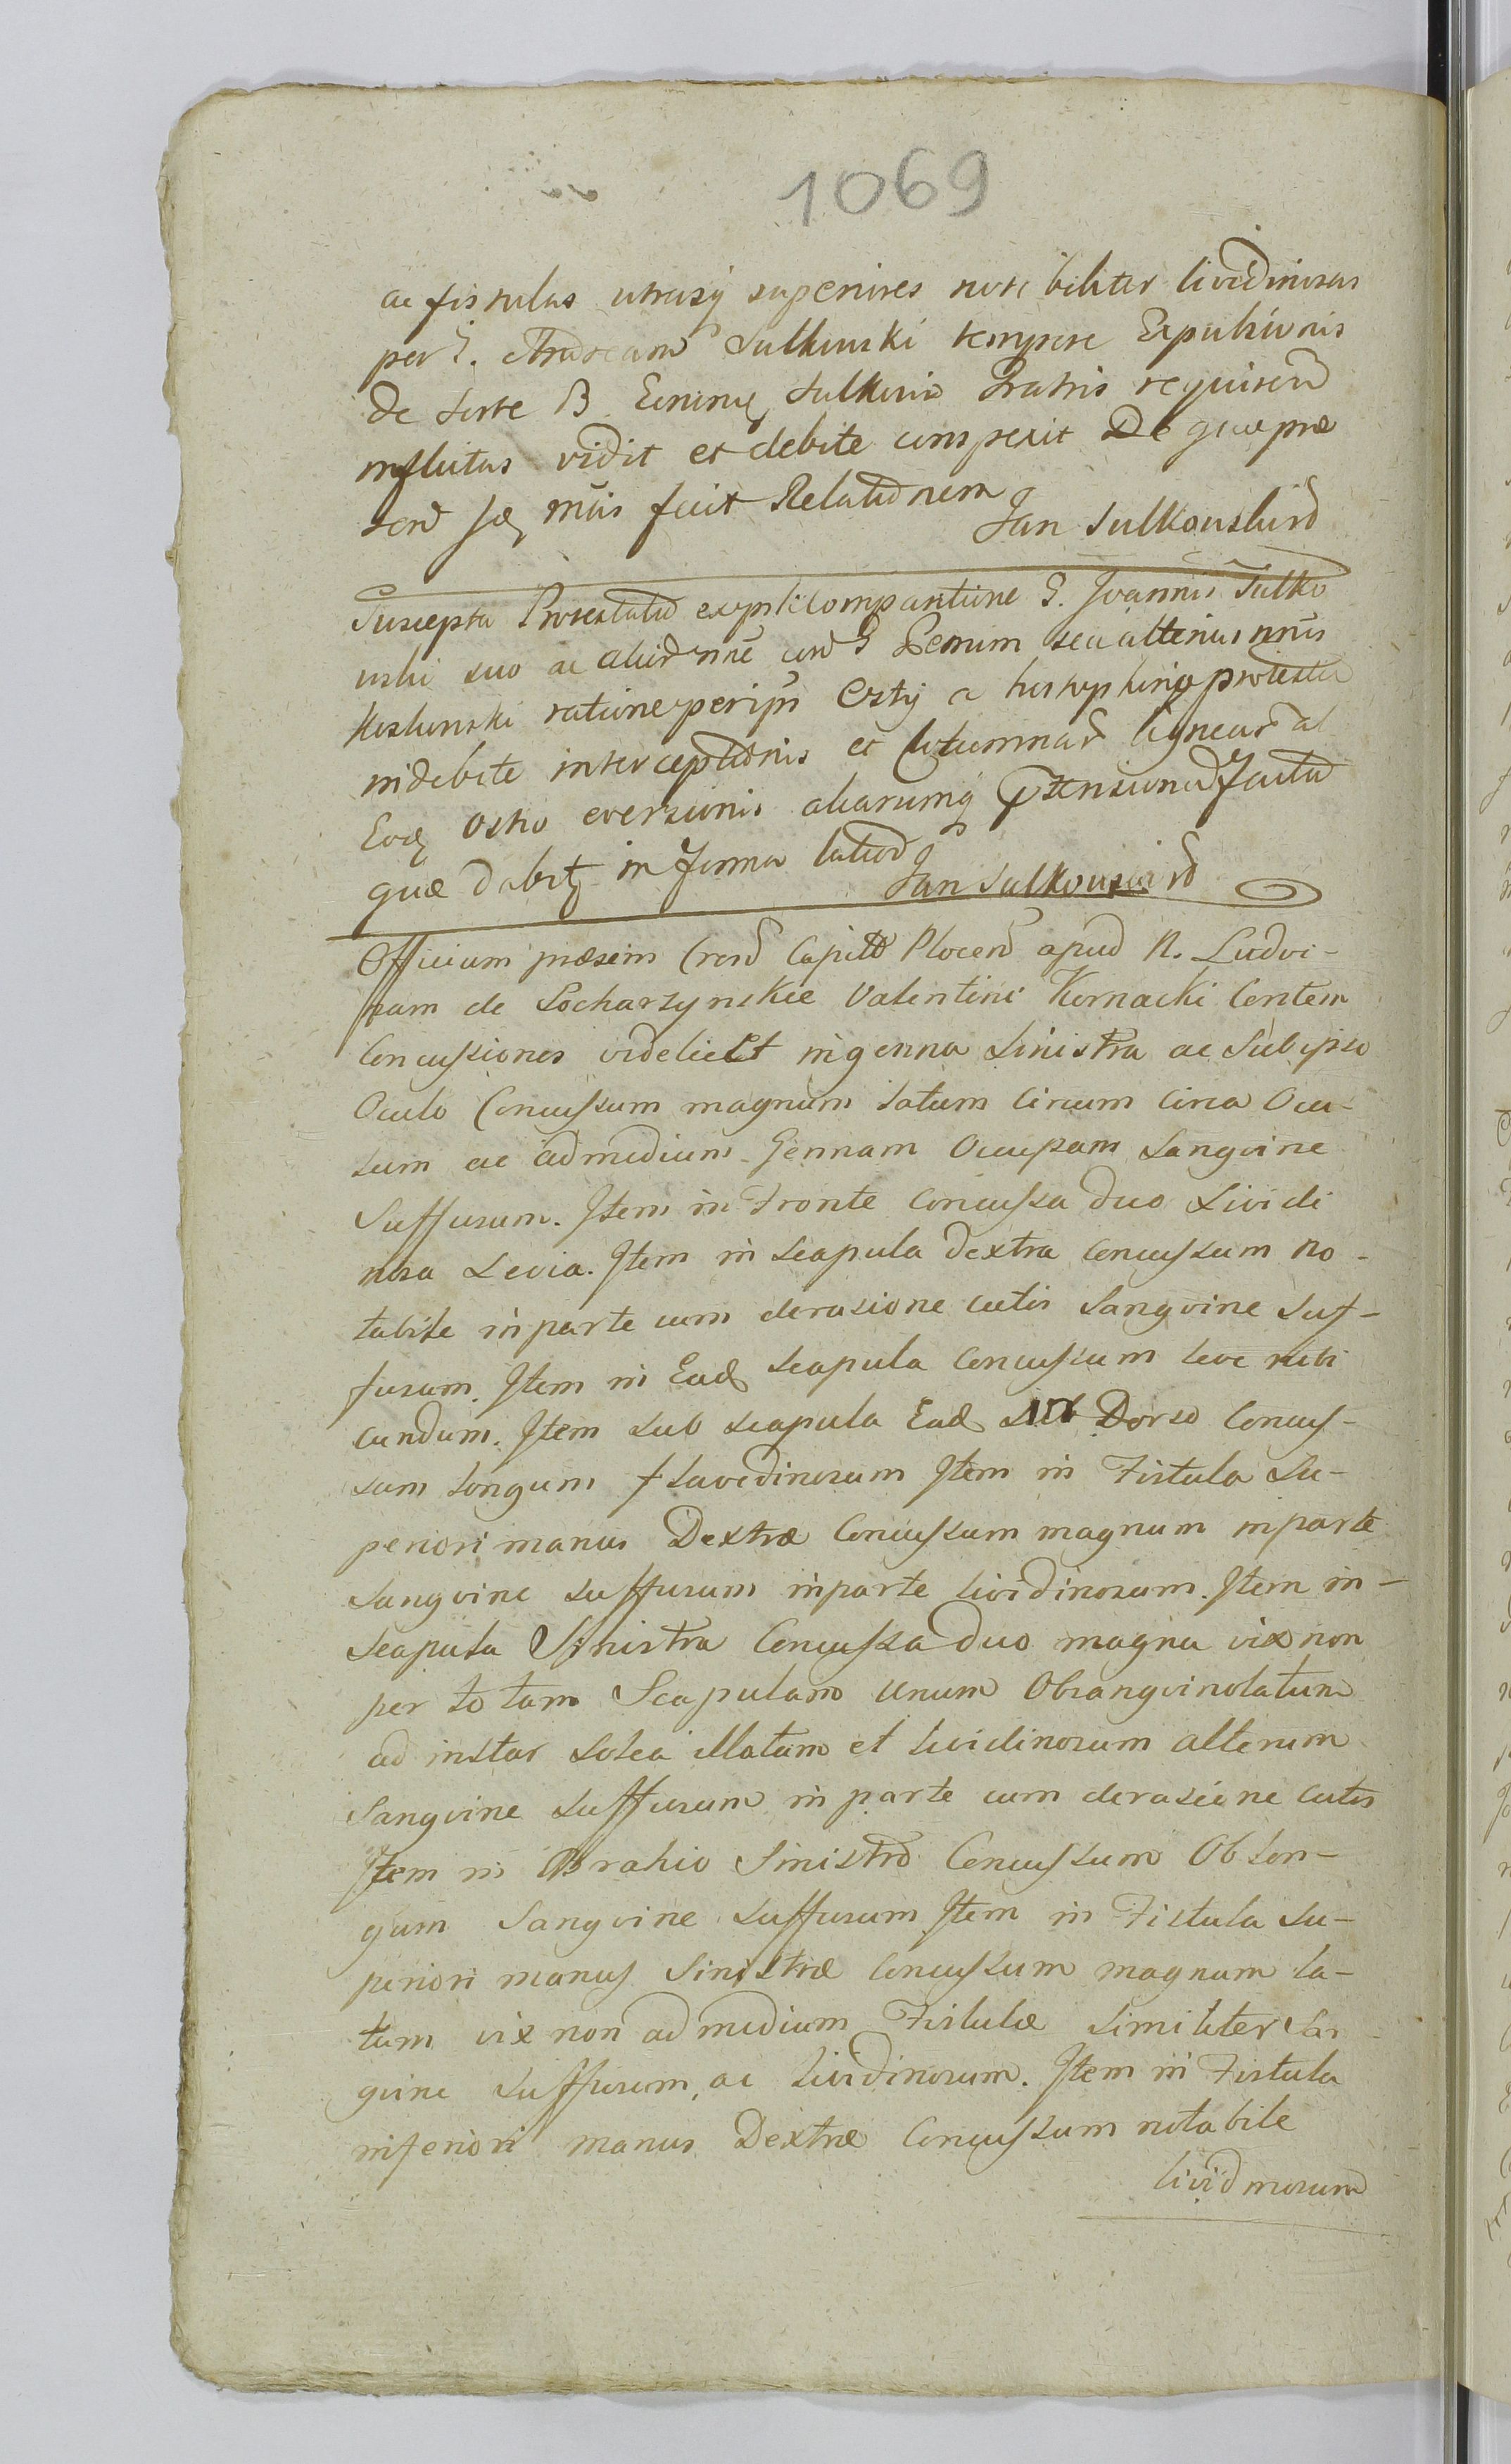 1069
ac fistulas utrasq superiores notabiliter lividinosas
per G. Andream Sulkowski tempore Expulsionis
de Sorte B Eorund Sulkowo Fratris requisit
inflictas vidit et debite conspexit De quo præ
fecit Relationem
Jan Sulkowski
Suscepta Protestatio ex comparitione G. Joannis Sulko
wski suo ac aliorum con G seu alterius nois
ratione Osty a protestan
indebite interceptionis et columnar lignear al
Eod Ostio eversionis aliarumq Facta
quæ dabit in Forma lation
Jan Sulkowski
Officium præsens Cas Capit Plocen apud N. Ludvi-
nam de Socharzynskie Valentini Kornacki Contem
Concussiones videlicet in genna Sinistra ac Sub ipso
Oculo Concussum magnum latum circum circa Ocu-
lum ac ad medium Gennam Occupans Sangvine
Suffusum. Item in Fronte Concussa duo Lividi
nosa Levia. Item in Scapula dextra Concussum no-
tabile in parte cum derasione cutis Sangvine Suf-
fusum. Item in Ead Scapula Concussum leve rubi
cundum. Item Sub Scapula Ead in Dorso Concus-
sum Longum Item in Fistula Su-
periori manus Dextræ Concussum magnum in parte
Sangvine Suffusum in parte lividinosum. Item in-
Scapula Sinistra Concussa duo magna vix non
per totam Scapulam unum Obsangvinolatum
ad instar Solea illatum et lividinosum alterum
Sangvine Suffusum in parte cum derasione cutis
Item in Brahio Sinistro Concussum Oblon-
gum Sangvine Suffusum Item in Fistula Su-
periori manus Sinistræ Concussum magnum la-
tum vix non ad medium Fistulæ Similiter San-
gvine Suffusum, ac lividinosum. Item in Fistula
inferiori manus Dextræ Concussum notabile
lividinosum